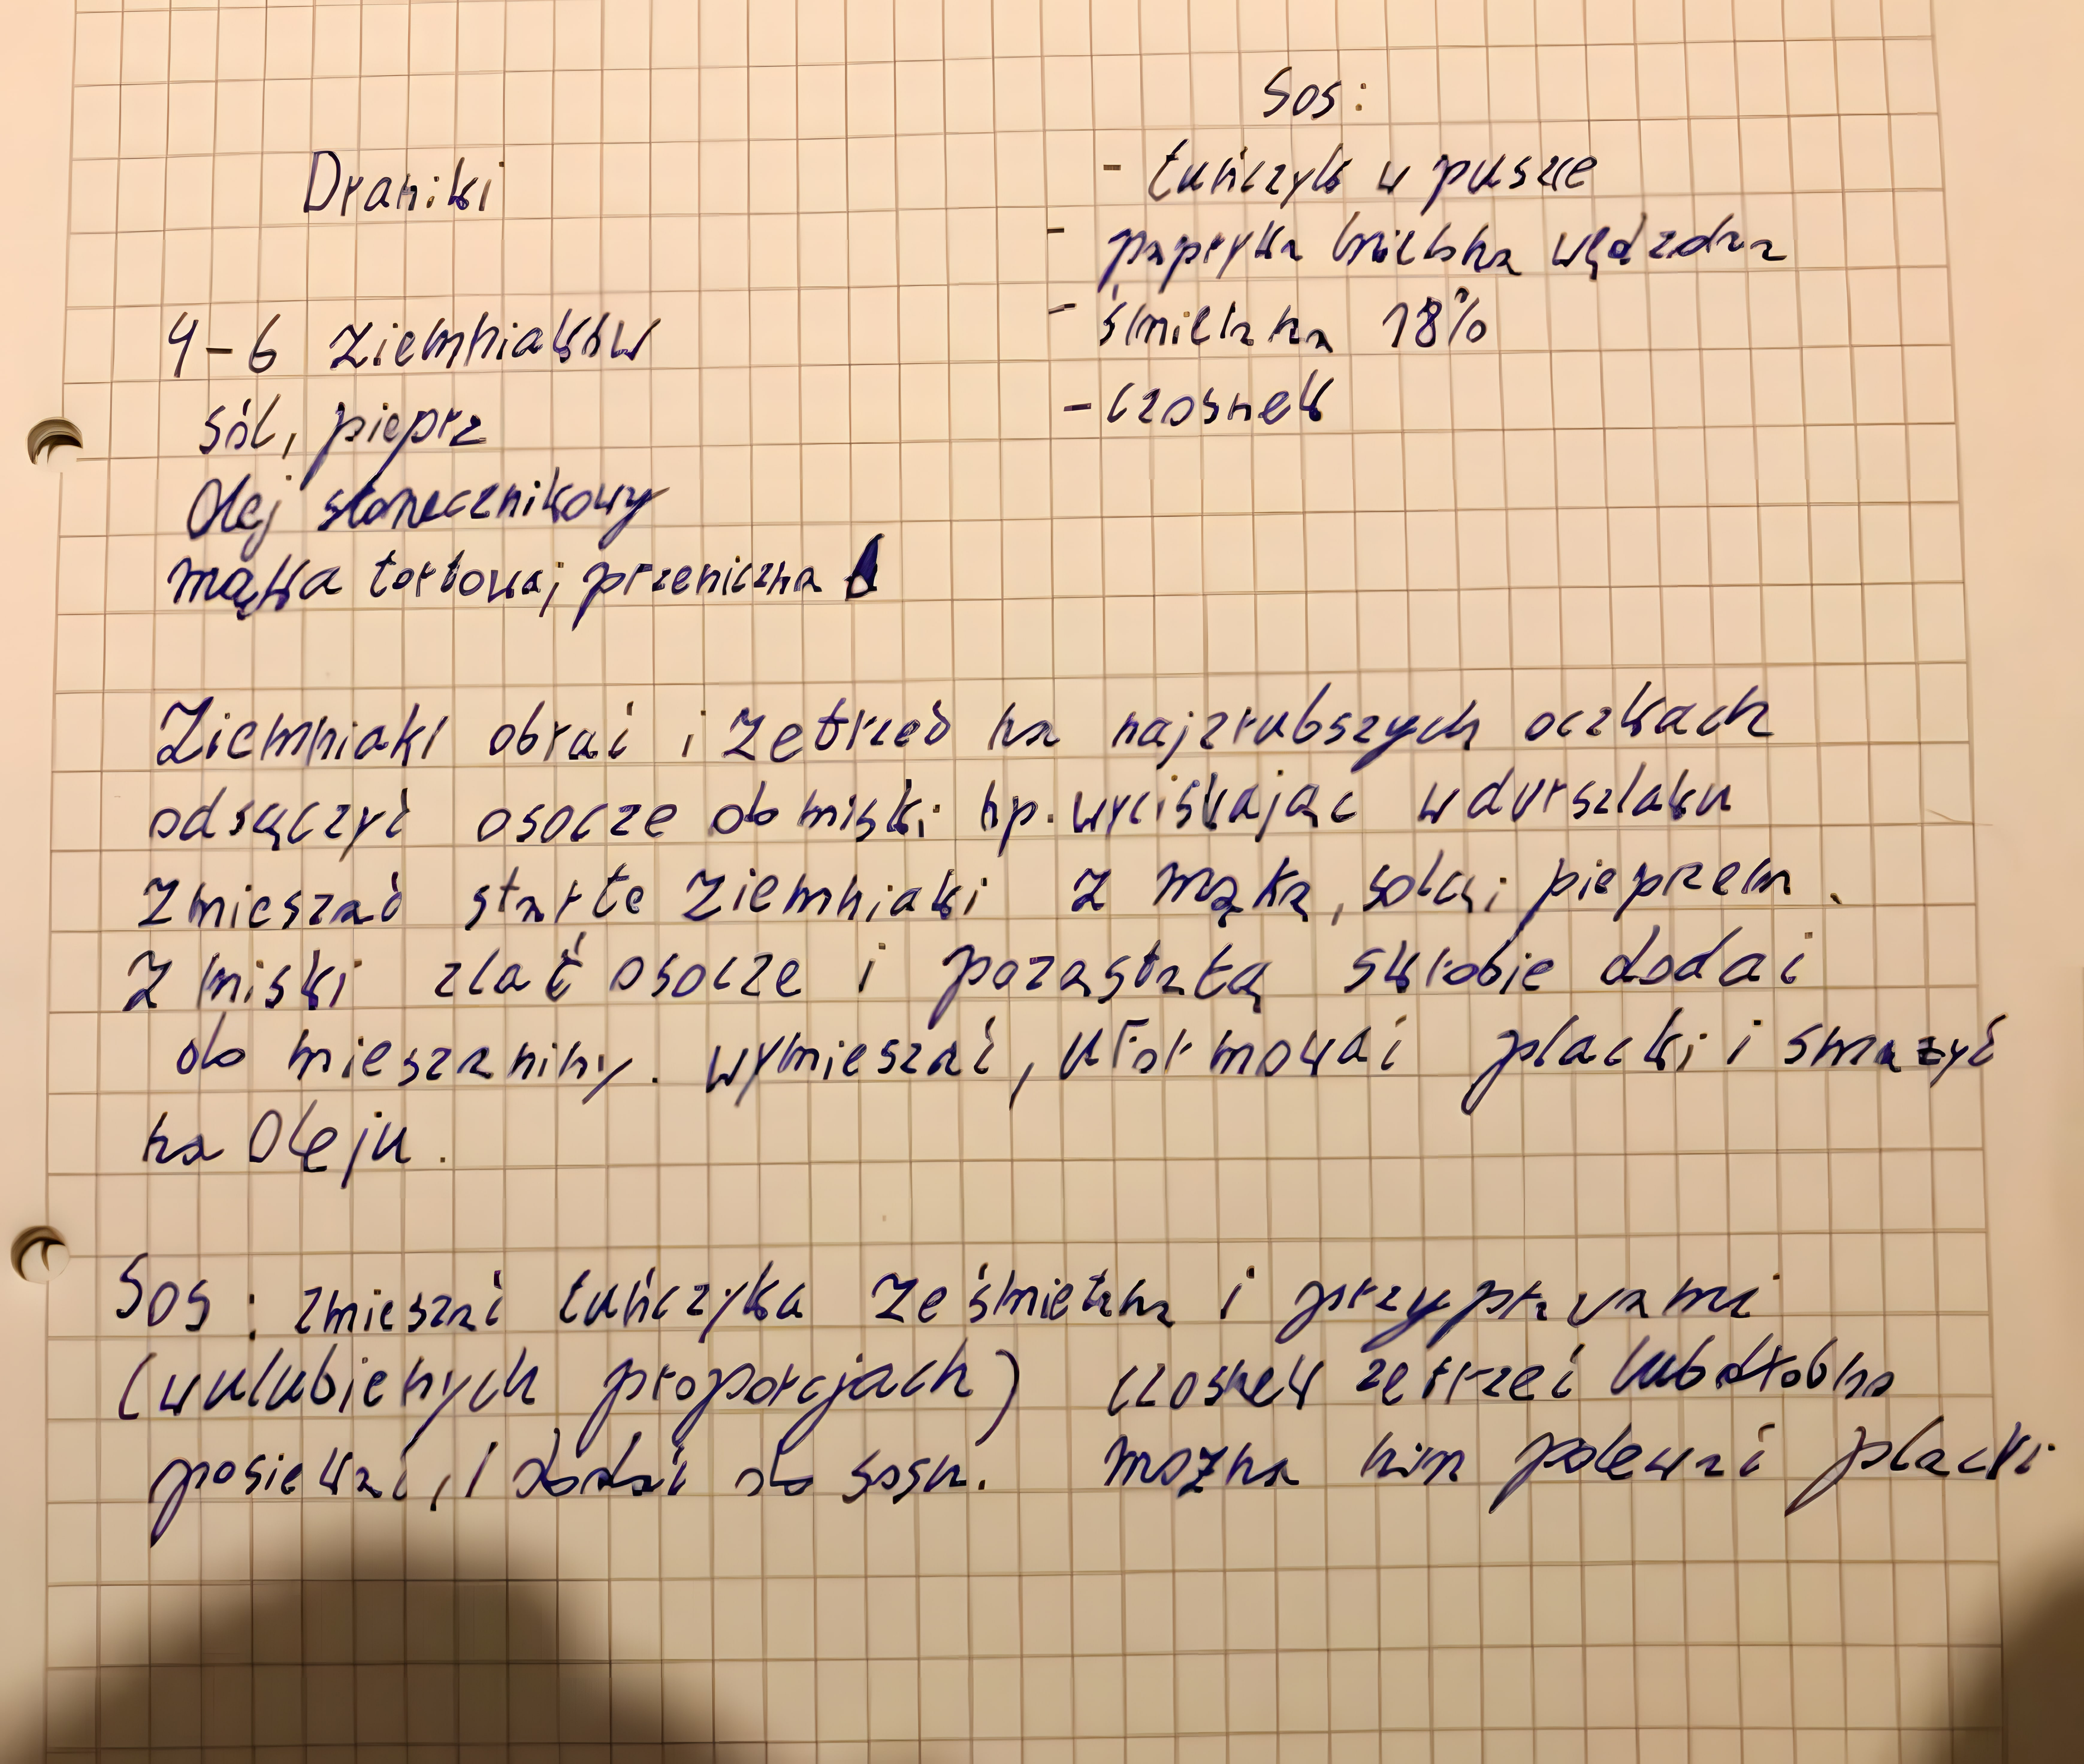 Draniki
4-6 ziemniaków
sól, pieprz
Olej słonecznikowy
mąka tortowa, przeniczna
Sos:
- tuńczyk w puszce
- papryka mielona wędzona
- śmietana 18%
- czosnek
Ziemniaki obrać i zetrzeć na najgrubszych oczkach
odsączyć osocze do miski np. wyciskając w durszlaku
Zmieszać starte ziemniaki z mąką, solą i pieprzem.
Z miski zlać osocze i pozostałą skrobie dodać
do mieszaniny. wymieszać, uformować placki i smażyć
na Oleju.
Sos: zmieszać tuńczyka ze śmietaną i przyprawami
(w ulubienych proporcjach) czosnek zetrzeć lub drobno
posiekać, i dodać do sosu. można nim polewać placki